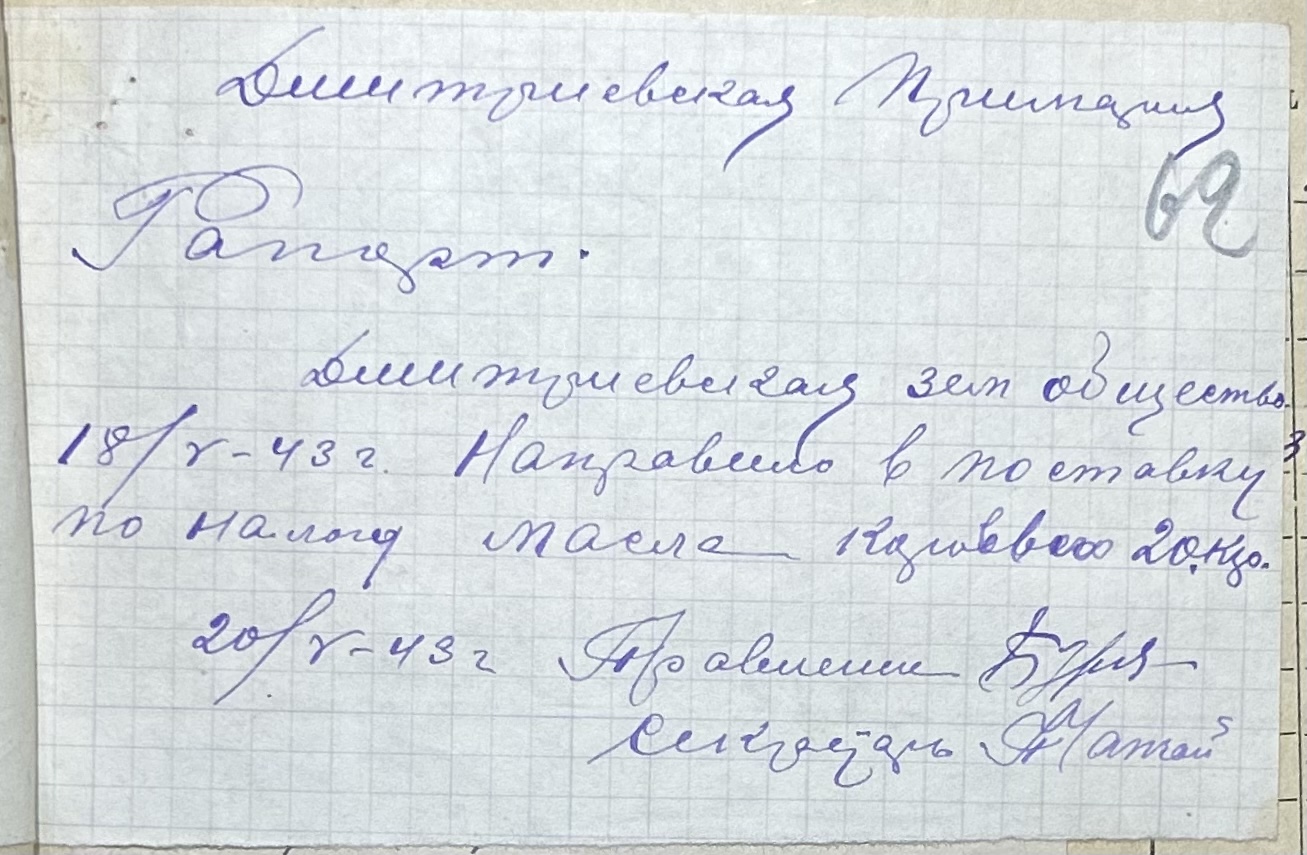 Дмитриевская Примария
62
Рапорт.
Дмитриевская зем общество
18/V-43 г. Направило в поставку
по налогу масла коровьего 20 кгр.
20/V-43 г Правлении
секретарь